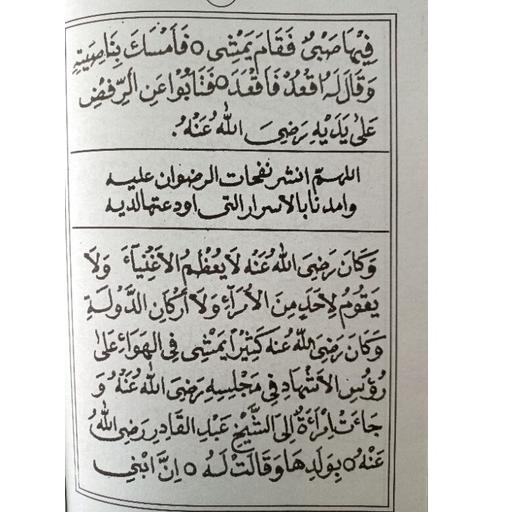 فِيْهَا صَبِىٌّ فَقَامَ يَمْشِى ○ فَاَمْسَكَ بِنَاصِيَتِهِ
وَقَالَ لَهُ اقْعُدْ فَاَقْعَدَ ○ فَتَابُوْا عَنِ الرَّفْضِ
عَلىٰ يَدَيْهِ رَضِىَ اللّٰهُ عَنْهُ .
اللهمّ انشر نفحات الرضوان عليه
وامدنا بالاسرار التى اودعتها لديه
وَكَانَ رَضِىَ اللّٰهُ عَنْه لَا يُعَظِّمُ الْاَغْنِيَآءَ وَلَا
يَقُوْمُ لِاَحَدٍ مِنَ الْاُمَرَآءِ وَلَا اَرْكَانِ الدَّوْلَةِ
وَكَانَ رَضِىَ اللّٰهُ عنه كَثِيْرًا يَمْشِى فِى الْهَوَآءِ عَلىٰ
رُؤُسِ الْاَشْهَادِ فِى مَجْلِسِهِ رَضِىَ اللّٰهُ عَنْهُ وَ
جَآءَتْ اِمْرَأَةٌ اِلَى الشَّيْخِ عَبْدِ الْقَادِرِ رَضِىَ اللّٰهُ
عَنْهُ ○ بِوَلَدِهَا وَقَالَتْ لَهُ ○ اِنَّ ابْنِى